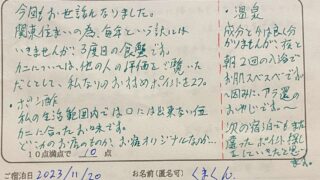 今回もお世話になりました。
関東住まいの為、毎年という訳には
いきませんが、3度目の食蟹です。
カニについては、他の人の評価をご覧いた
だくとして、私なりのおすすめポイントを2ケ。
・ポン酢
私の生活範囲内では口には出来ない位
カニに合ったお味です。
どこのお店のものか、お宿オリジナルなのか…
10点満点で 10 点
ご宿泊日 2023/11/20
・温泉
成分とかは良く分
かりませんが、夜と
朝2回の入浴で
お肌スベスベです。
〜因みに、アラ還の
おやじです。〜
次の宿泊でもまた
違ったポイント探しを
していきたいと思い
ます。
お名前(匿名可) くまくん